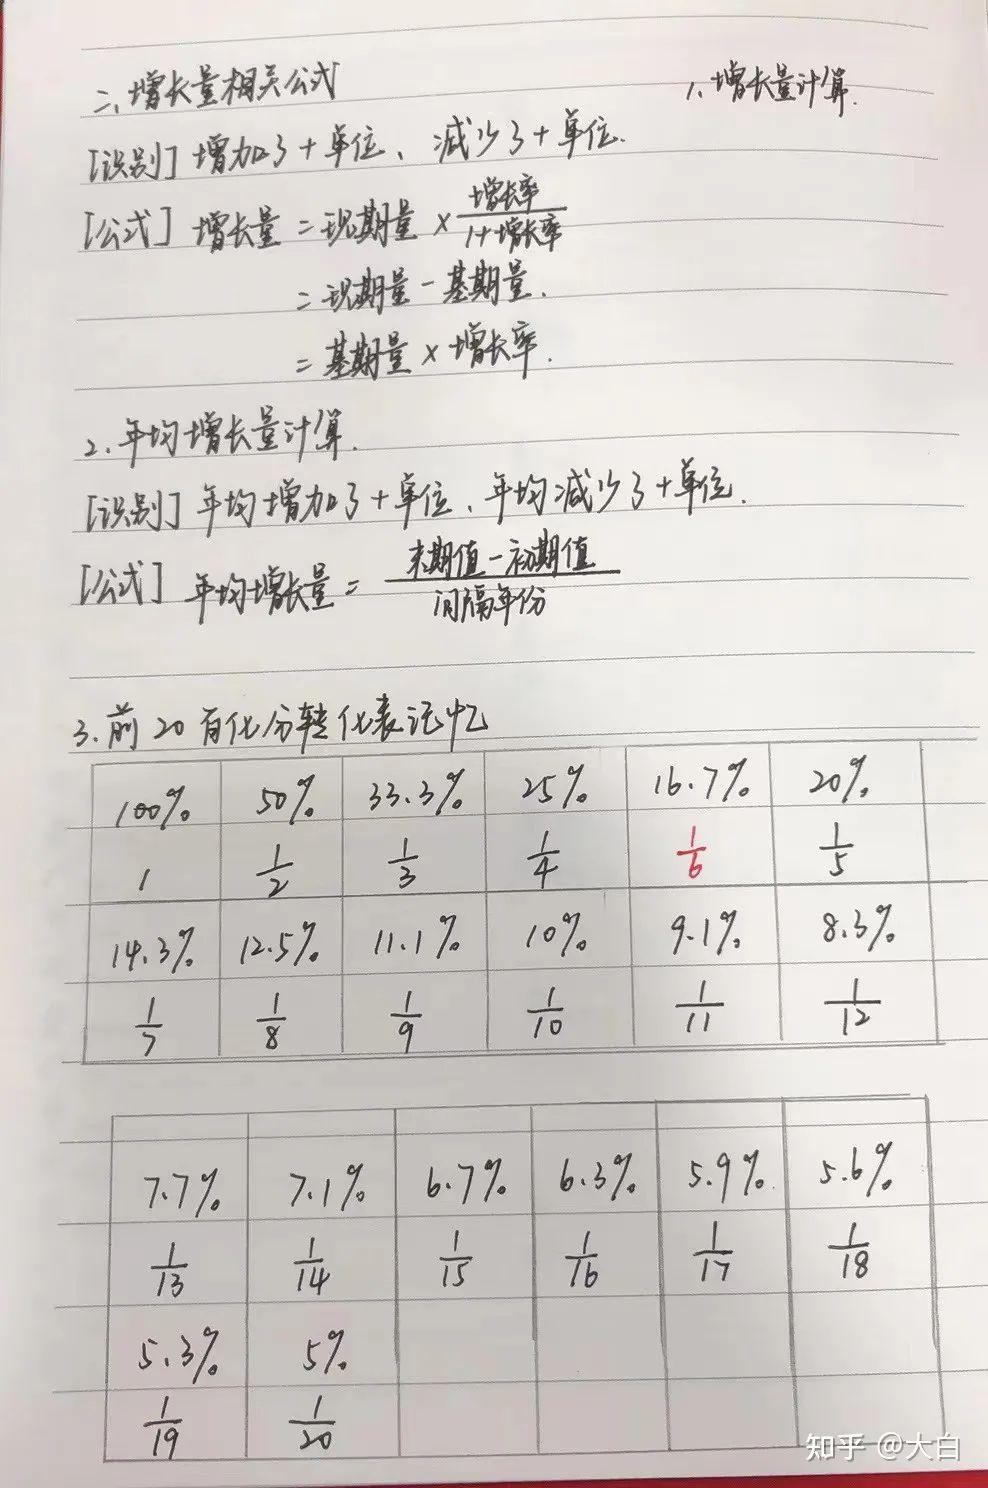 二、增长量相关公式
1、增长量计算.
[识别] 增加了+单位、减少了+单位.
[公式] 增长量 = 现期量 × 增长率/1+增长率
= 现期量 - 基期量.
= 基期量 × 增长率.
2、年均增长量计算.
[识别] 年均增加了+单位、年均减少了+单位.
[公式] 年均增长量 = 末期值-初期值/间隔年份
3.前20百化分转化表记忆
100% 50% 33.3% 25% 16.7% 20%
1 1/2 1/3 1/4 1/6 1/5
14.3% 12.5% 11.1% 10% 9.1% 8.3%
1/7 1/8 1/9 1/10 1/11 1/12
7.7% 7.1% 6.7% 6.3% 5.9% 5.6%
1/13 1/14 1/15 1/16 1/17 1/18
5.3% 5%
1/19 1/20
知乎 @大白